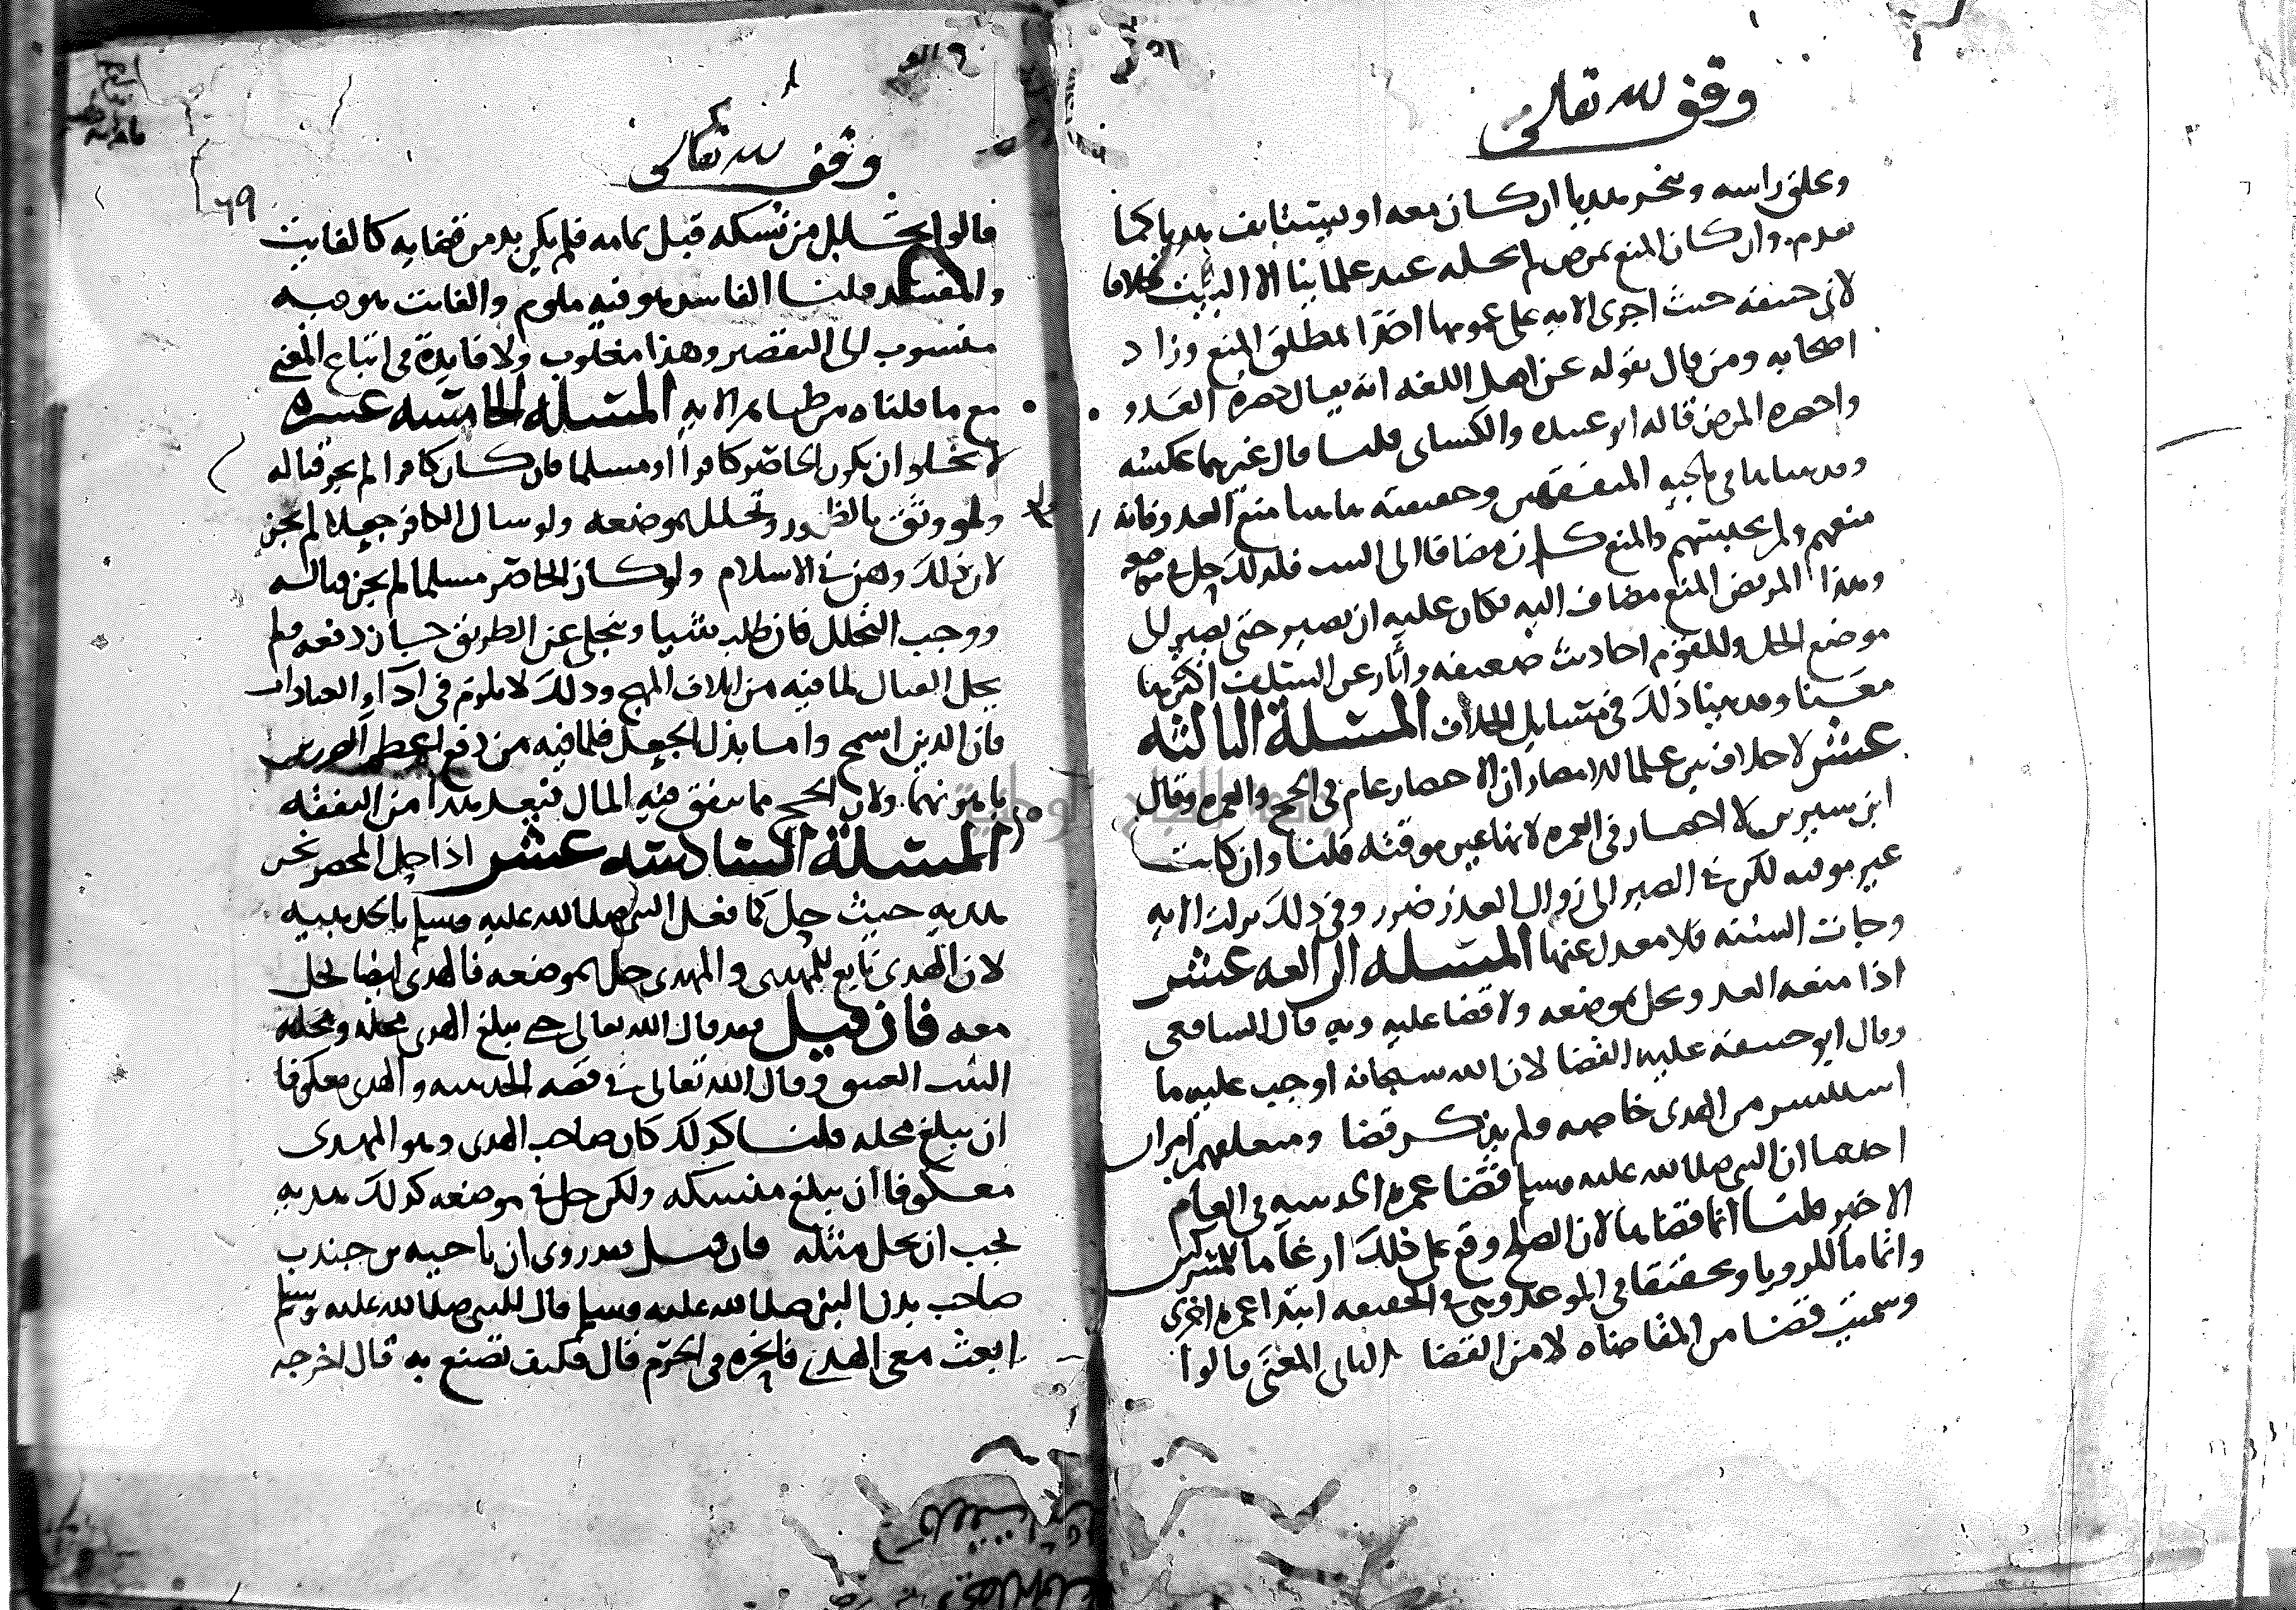 وقف لله تعالى
وحلق راسه ونحر هديا ان كان معه او يستانف هديا كما
تقدم وان كان المنع بمرض لم يحله عند علمائنا الا البيت خلافا
لابي حنيفة حيث اجرى الاية على عمومها اخذا لمطلق المنع وزاد
اصحابه ومن قال بقوله عن اهل اللغة انه يقال حصره العدو
واحصره المرض قاله ابو عبيده والكسائي قلنا قال غيرهما عكسه
وقد بيناه في ملجيه المتفقهين وحقيقته هاهنا منع العدو فانه
منعهم ولم يحبسهم والمنع كان مضافا الى البيت فلذلك حل في موضعه
وهذا المريض المنع مضاف اليه فكان عليه ان يصبر حتى يصير الى
موضع الحل وللقوم احاديث ضعيفه واثار عن السلف اكثرها
معنعنا وقد بينا ذلك في مسايل الخلاف المسلة الثالثه
عشر لا خلاف بين علما الامصار ان الاحصار عام في الحج والعمره وقال
ابن سيرين لا احصار في العمره لانها غير موقته قلنا وان كانت
غير موقته لكن في الصبر الى زوال العذر ضرر وفي ذلك نزلت الايه
وجات السنه فلا معدل عنها المسله الرابعه عشر
اذا منعه العدو يحل بموضعه ولا قضا عليه وبه قال الشافعي
وقال ابو حنيفه عليه القضا لان الله سبحانه اوجب عليه ما
استيسر من الهدى خاصه ولم يذكر قضا ومتعلقهم امران
احدهما ان النبي صلى الله عليه وسلم قضا عمره الحديبيه في العام
الاخر قلنا انما قضاها لان الصلح وقع على ذلك ارغاما للمشركين
واتماما للرويا وتحقيقا في الموعد وهي في الحقيقه ابتدا عمره اخرى
وسميت قضا من المقاضاه لا من القضا الثاني المعنى قالوا
وقف لله تعالى
٦٩
قالوا تحلل من نسكه قبل تمامه فلم يكن بد من قضايه كالفايت
والمفسد قلنا الفاسد هو فيه ملوم والفايت هو فيه
منسوب الى التقصير وهذا مغلوب ولا فايدة في اتباع المعنى
مع ما قلناه من ظاهر الايه المسله الخامسه عشره
لا يخلو ان يكون الحاصر كافرا او مسلما فان كان كافرا لم يجز قتاله
ولو وثق بالظهور وتحلل بموضعه ولو سال الكافر جعلا لم يجز
لان ذلك وهن في الاسلام ولو كان الحاصر مسلما لم يجز قتاله
ووجب التحلل فان طلب شيا ويتخلى عن الطريق جاز دفعه ولم
يحل القتال لما فيه من اتلاف المهج وذلك لا يلزم في ادا العبادات
فان الدين اسمح واما بذل الجعل فلما فيه من دفع اعظم الضررين
باهونهما ولان الحج مما ينفق فيه المال فيعد هذا من النفقه
المسلة السادسه عشر اذا حل المحصر نحر
هديه حيث حل كما فعل النبي صلى الله عليه وسلم بالحديبيه
لان الهدى تابع للمهدي والمهدي حل بموضعه فالهدي ايضا يحل
معه فان قيل فقد قال الله تعالى حتى يبلغ الهدى محله ومحله
البيت العتيق وقال الله تعالى في قصه الحديبيه والهدى معكوفا
ان يبلغ محله قلنا كذلك كان صاحب الهدى وهو المهدى
معكوفا ان يبلغ منسكه ولكن حل في موضعه كذلك هديه
يجب ان يحل مثله فان قيل فقد روى ان ناجيه بن جندب
صاحب بدن النبي صلى الله عليه وسلم قال للنبي صلى الله عليه وسلم
ابعث معي الهدي فانحره في الحرم قال فكيف تصنع به قال اخرجه